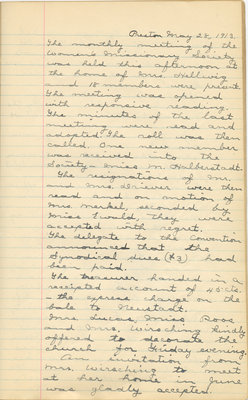 Preston May 28, 1913.
The monthly meeting of the
Women's Missionary Society
was held this afternoon at
the home of Mrs. Hellwig
and 18 members were present.
The meeting was opened
with responsive reading.
The minutes of the last
meeting were read and
adopted. The roll was then
called. One new member
was received into the
Society - Miss M. Halberstadt
The resignations of Mr.
and Mrs. Driever were then
read and on motion of
Mrs. Merkel, seconded by
Miss Ewald, they were
accepted with regret.
The delegate to the Convention
announced that the
Synodical dues ($3) had
been paid.
The Treasurer handed in a
receipted account of 45 cts.
- the express charge on the
bale to Neustadt.
Mrs. Lucas, Miss Roos
and Mrs. Wirsching kindly
offered to decorate the
church for Friday evening.
An invitation from
Mrs. Wirsching to meet
at her home in June
was gladly accepted.